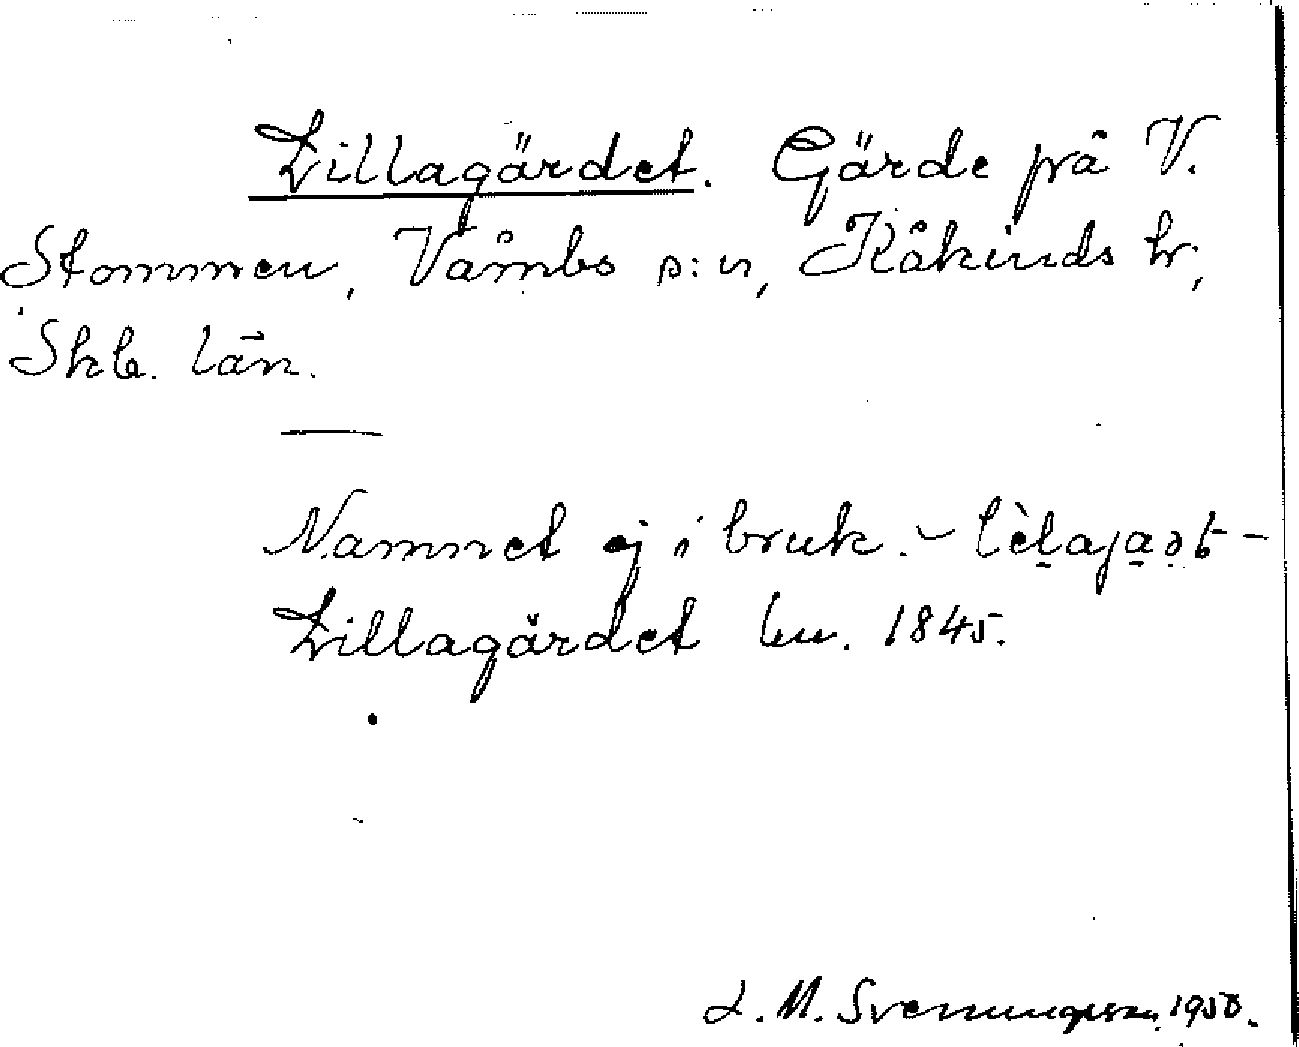 Lillagärdet. Gärde på V.
Stommen, Våmbs s:n, Kåkinds hr,
Skb. län.
Namnet ej i bruk. –
Lillagärdet lm. 1845.
L. M. Svenungsson 1950.